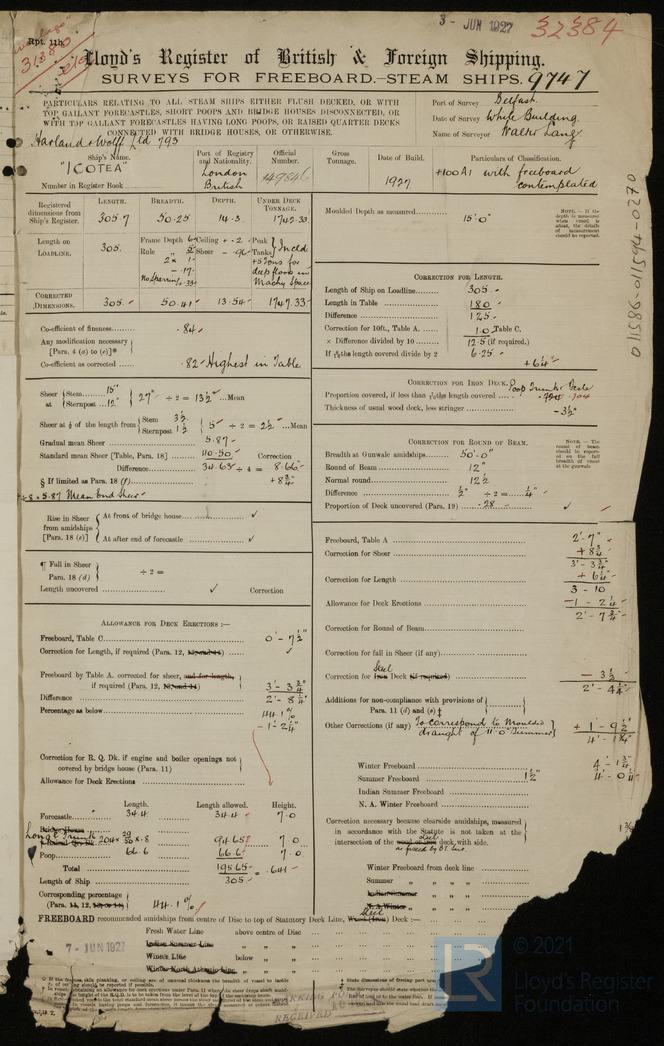 3 - JUN 1927
32384
Rpt. 11b.
31380
Lloyd's Register of British & Foreign Shipping.
SURVEYS FOR FREEBOARD.—STEAM SHIPS. 9747
PARTICULARS RELATING TO ALL STEAM SHIPS EITHER FLUSH DECKED, OR WITH
TOP GALLANT FORECASTLES, SHORT POOPS AND BRIDGE HOUSES DISCONNECTED, OR
WITH TOP GALLANT FORECASTLES HAVING LONG POOPS, OR RAISED QUARTER DECKS
CONNECTED WITH BRIDGE HOUSES, OR OTHERWISE.
Port of Survey Belfast
Date of Survey While Building
Name of Surveyor Walter Lang
Harland & Wolff Ltd 793
Ship's Name.
"ICOTEA"
Number in Register Book
Port of Registry and Nationality.
London
British
Official Number.
149846
Gross Tonnage.
Date of Build.
1927
Particulars of Classification.
+100A1 with freeboard
contemplated
Registered dimensions from Ship's Register.
LENGTH. BREADTH. DEPTH. UNDER DECK TONNAGE.
305.7 50.25 14.3 1742.33
Length on LOADLINE.
305.
Frame Depth
Rule
No Sparring
Ceiling
Sheer
Peak Tanks
Incld
+5 tons for
deep floors in
Machy Space
CORRECTED DIMENSIONS.
305. 50.41 13.54 1747.33
Co-efficient of fineness .84
Any modification necessary
[Para. 4 (a) to (e)]*
Co-efficient as corrected .82 Highest in Table
Sheer at { Stem 15" Sternpost 12" } 27" ÷ 2 = 13½" Mean
Sheer at ⅛ of the length from { Stem 3½ Sternpost 1½ } 5" ÷ 2 = 2½" Mean
Gradual mean Sheer 5.87
Standard mean Sheer [Table, Para. 18] 40.50 Correction
Difference 34.63 ÷ 4 = 8.66
§ If limited as Para. 18 (f) +8¾
5.87 Mean End Sheer
Rise in Sheer from amidships [Para. 18 (e)] { At front of bridge house ✓
At after end of forecastle ✓
¶ Fall in Sheer Para. 18 (d) } ÷ 2 =
Length uncovered ✓ Correction
ALLOWANCE FOR DECK ERECTIONS :—
Freeboard, Table C 0' - 7½"
Correction for Length, if required (Para. 12, 13, and 14) ✓
Freeboard by Table A. corrected for sheer, and for length, if required (Para. 12, 13, and 14) 3' - 3¾"
Difference 2' - 8¼"
Percentage as below 44.1%
-1 - 2¼"
Correction for R. Q. Dk. if engine and boiler openings not covered by bridge house (Para. 11)
Allowance for Deck Erections
Length. Length allowed. Height.
Forecastle 34.4 34.4 7.0
Bridge House
Long Trunk 94.65 7.0
Poop 66.6 66.6 7.0
Total 195.65
Length of Ship 305. = .641
Corresponding percentage (Para. 11, 12, 13, or 14) 44.1%
Moulded Depth as measured 15'.0"
NOTE.—If the depth is measured when vessel is afloat, the details of measurement should be reported.
CORRECTION FOR LENGTH.
Length of Ship on Loadline 305.
Length in Table 180
Difference 125.
Correction for 10ft., Table A. 1.0 Table C.
× Difference divided by 10 12.5 (if required.)
If 6/10ths length covered divide by 2 6.25
+6¼"
CORRECTION FOR IRON DECK. Poop Trunk & Fecsle
Proportion covered, if less than 7/10ths length covered .704
Thickness of usual wood deck, less stringer -3½"
CORRECTION FOR ROUND OF BEAM.
Breadth at Gunwale amidships 50'-0"
Round of Beam 12"
Normal round 12½
Difference ½" ÷ 2 = ¼"
Proportion of Deck uncovered (Para. 19) .28 ✓
NOTE.—The round of beam should be reported on the full breadth of vessel at the gunwale
Freeboard, Table A 2' - 7"
Correction for Sheer +8¾
3' - 3¾
Correction for Length +6¼
3 - 10
Allowance for Deck Erections -1 - 2¼
2' - 7¾"
Correction for Round of Beam
Correction for fall in Sheer (if any)
Correction for Iron Steel Deck (if required) - 3½
2' - 4¼"
Additions for non-compliance with provisions of Para. 11 (d) and (e) ‡
Other Corrections (if any) To correspond to Moulded
draught of 11'-0" Summer +1' - 9½"
4' - 1¾"
Winter Freeboard 4' - 1¾"
Summer Freeboard 1½" 4' - 0¼"
Indian Summer Freeboard
N. A. Winter Freeboard
Correction necessary because clearside amidships, measured
in accordance with the Statute is not taken at the
intersection of the wood or iron Steel deck, with side.
as fixed by B.T. Line
Winter Freeboard from deck line
Summer „ „ „ „
Indian Summer „ „ „ „
N.A. Winter „ „ „ „
FREEBOARD recommended amidships from centre of Disc to top of Statutory Deck Line, Wood (Iron) Steel Deck :—
Fresh Water Line above centre of Disc
Indian Summer Line „ „
Winter Line below „ „
Winter North Atlantic Line „ „
7 - JUN 1927
RECEIVED
011586-011594-0270
© 2021
LR
Lloyd's Register
Foundation